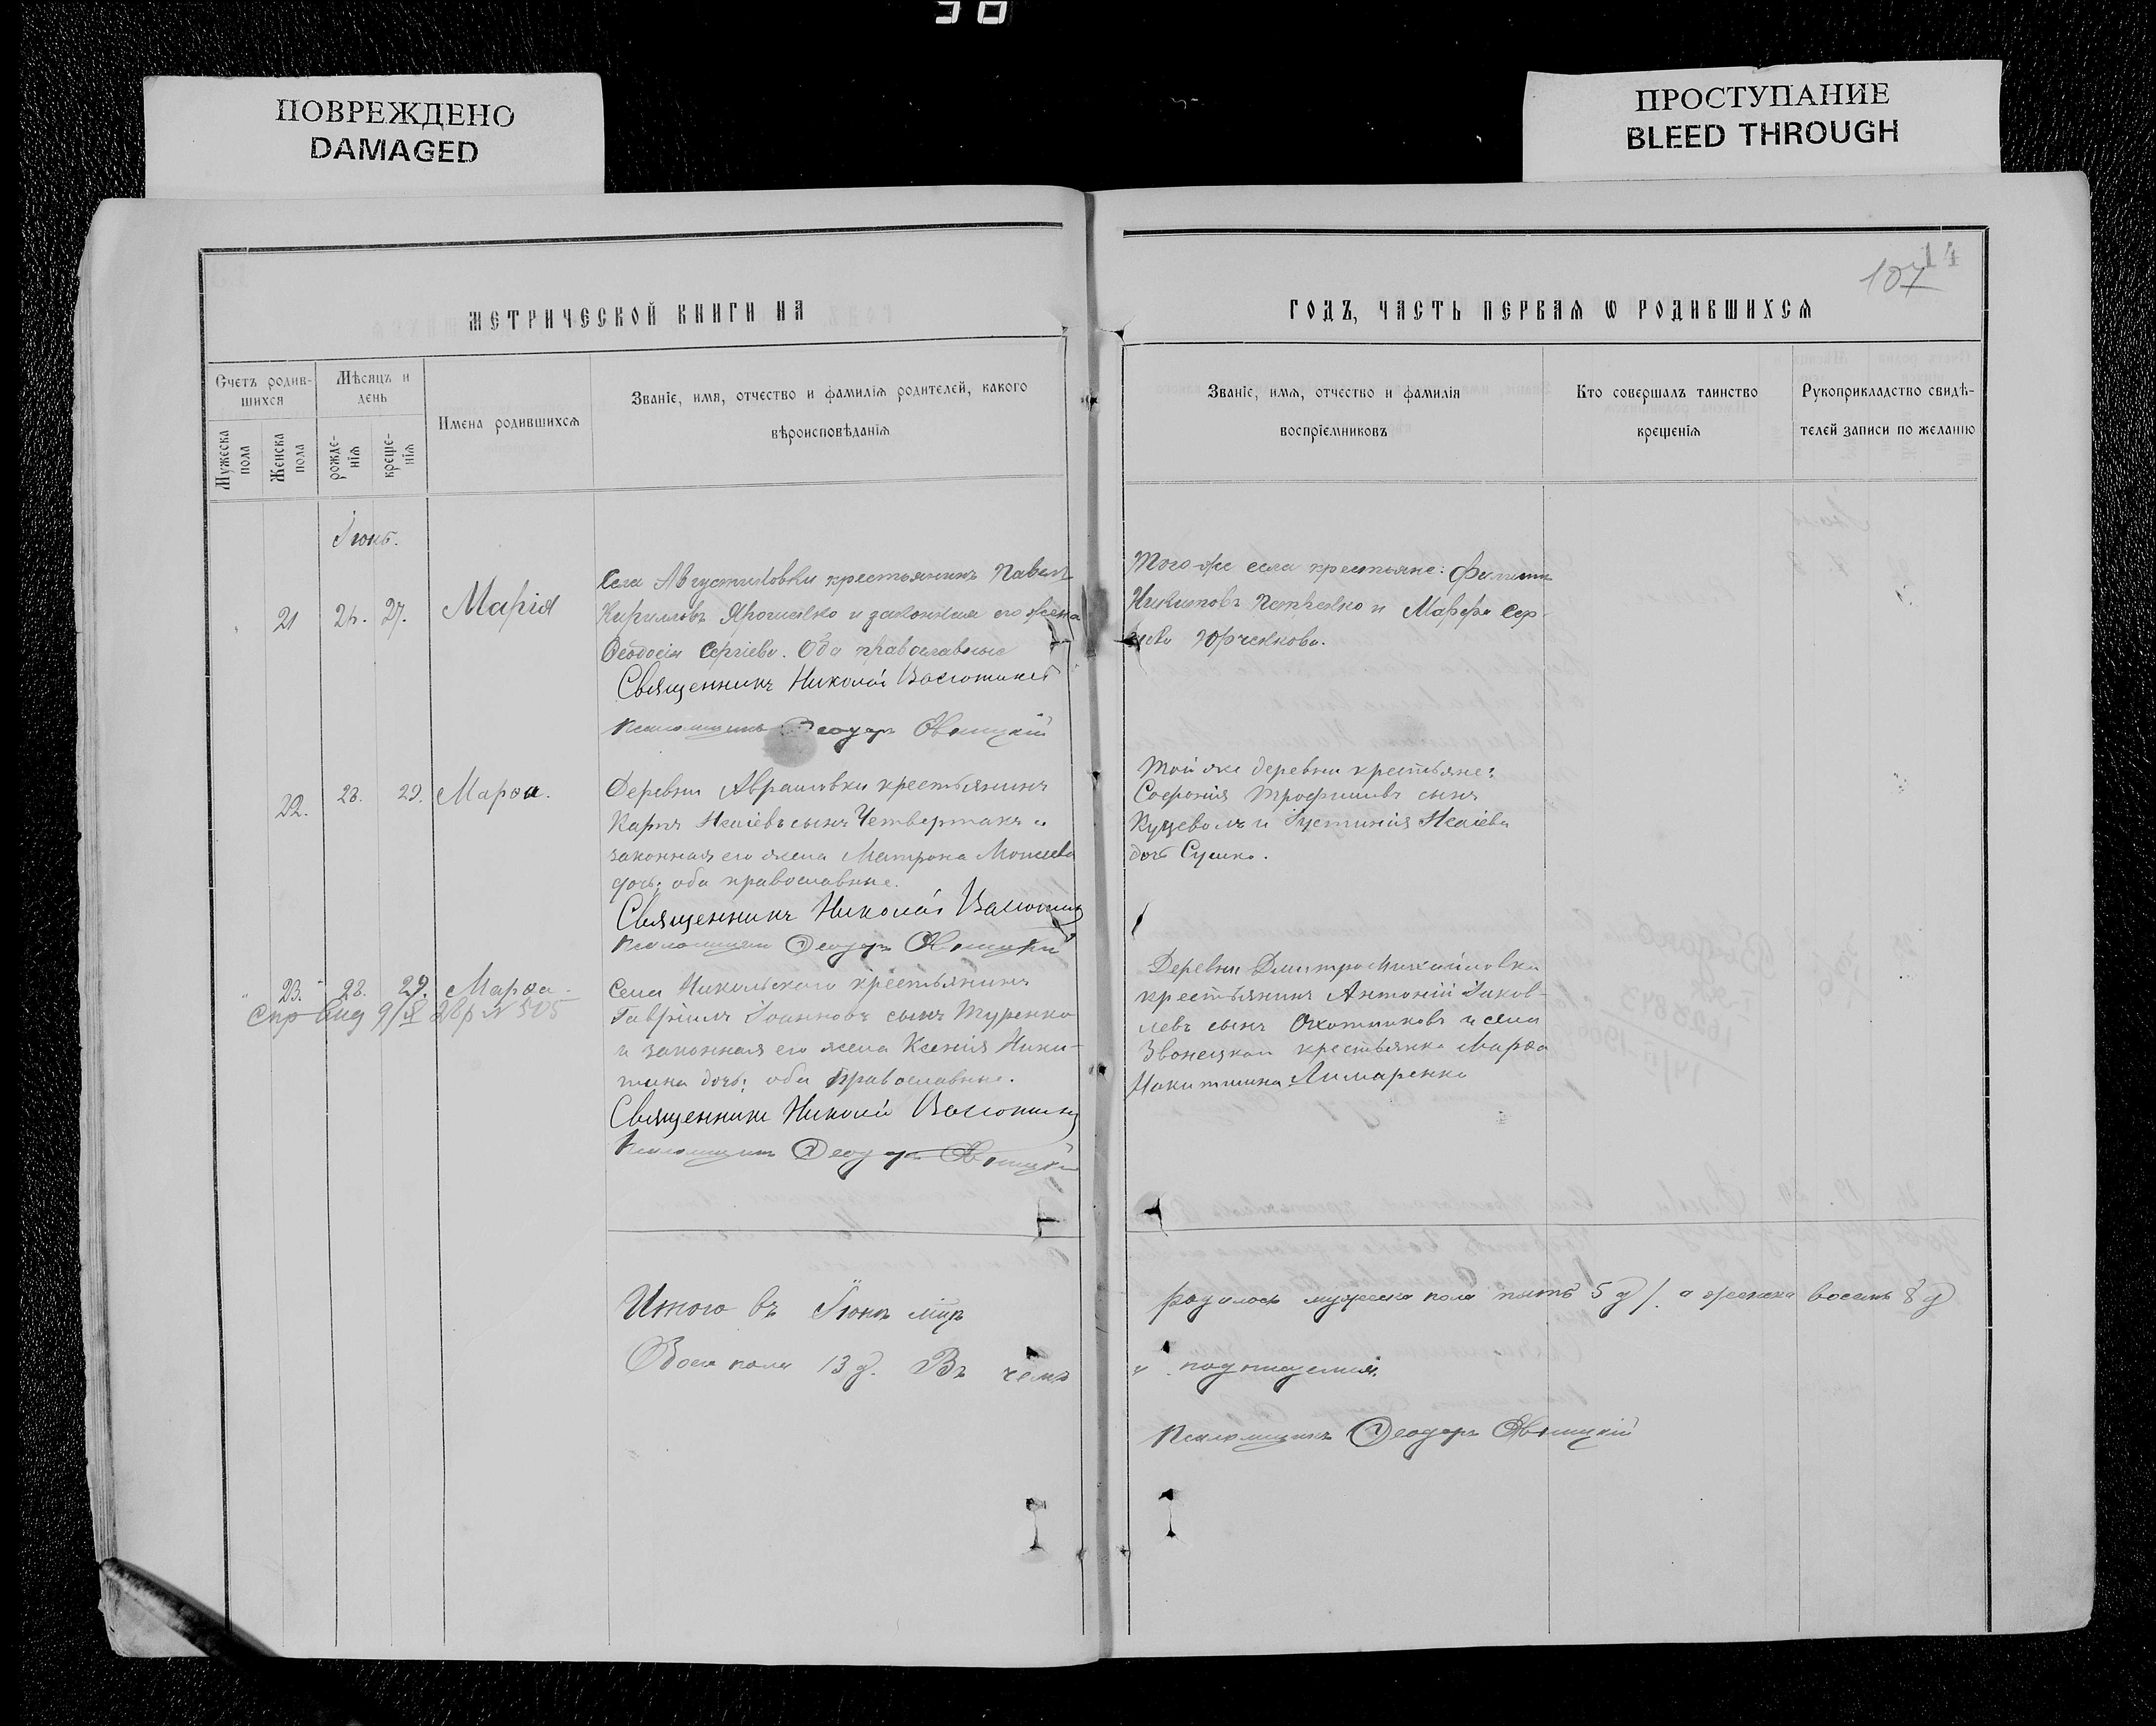 ПОВРЕЖДЕНО
DAMAGED
ПРОСТУПАНИЕ
BLEED THROUGH
14
107
МЕТРИЧЕСКОЙ КНИГИ НА
ГОДЪ, ЧАСТЬ ПЕРВАЯ Ѡ РОДИВШИХСЯ
Счетъ родив-
шихся
Мѣсяцъ и
день
Мужеска
пола
Женска
пола
рожде-
нія
креще-
нія
Имена родившихся
Званіе, имя, отчество и фамилія родителей, какого
вѣроисповѣданія
Званіе, имя, отчество и фамилія
воспріемниковъ
Кто совершалъ таинство
крещенія
Рукоприкладство свидѣ-
телей записи по желанію
Іюнь.
21
27.
Марія
Села крестьянинъ Павелъ
Кирилловъ и законная его жена
Ѳеодосія Сергіева. Оба православные
Священникъ Николай
Псаломщикъ Ѳеодоръ
Того-же села крестьяне: Филиппъ
Никитовъ Петренко и Марфа Сер-
гіева Юрченкова.
22.
28. 29.
Марѳа.
Деревни Авраамовки крестьянинъ
Карпъ Исаіевъ сынъ Четвертакъ и
законная его жена Матрона Моисеева
дочь; оба православные.
Священникъ Николай
Псаломщикъ Ѳеодоръ
Той же деревни крестьяне:
Софроній Трофимовъ сынъ
Куцеволъ и Іустинія Исаіева
дочь Сушко.
23.
28. 29.
Марѳа.
№ 505
Села Никольскаго крестьянинъ
Гавріилъ Іоанновъ сынъ Туренко
и законная его жена Ксенія Ники-
тина дочь; оба православные.
Священникъ Николай
Псаломщикъ Ѳеодоръ
Деревни Дмитро-Михайловки
крестьянинъ Антоній Іаков-
левъ сынъ Охотниковъ и села
Звонецкаго крестьянка Марѳа
Лимаренко
Итого въ Іюнѣ мцѣ
родилось мужеска пола пять 5 д /. а женска восемь 8 д
Обоего пола 13 д. Въ чемъ
и подписуемся.
Псаломщикъ Ѳеодоръ